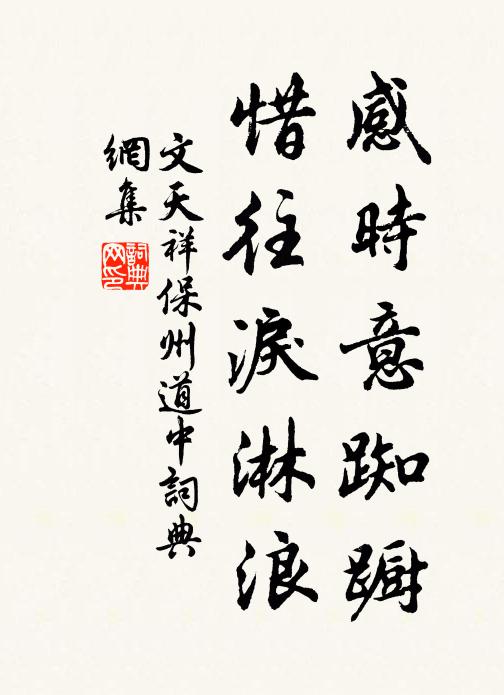 感時意踟蹰
惜往淚淋浪
文天祥保州道中詞典
網集
詞典网印